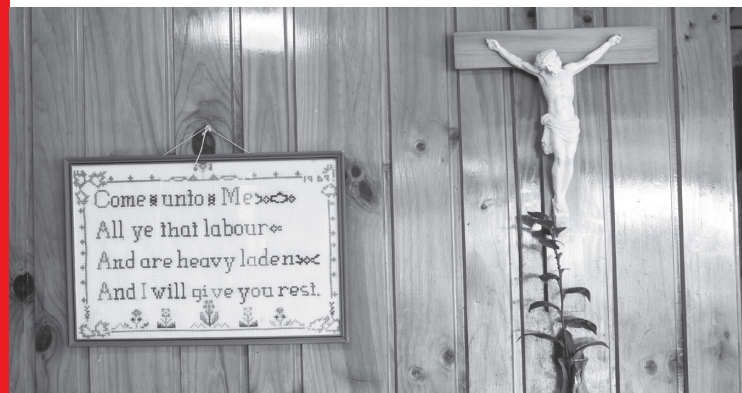 Come unto Me
All ye that labour
And are heavy laden
And I will give you rest.